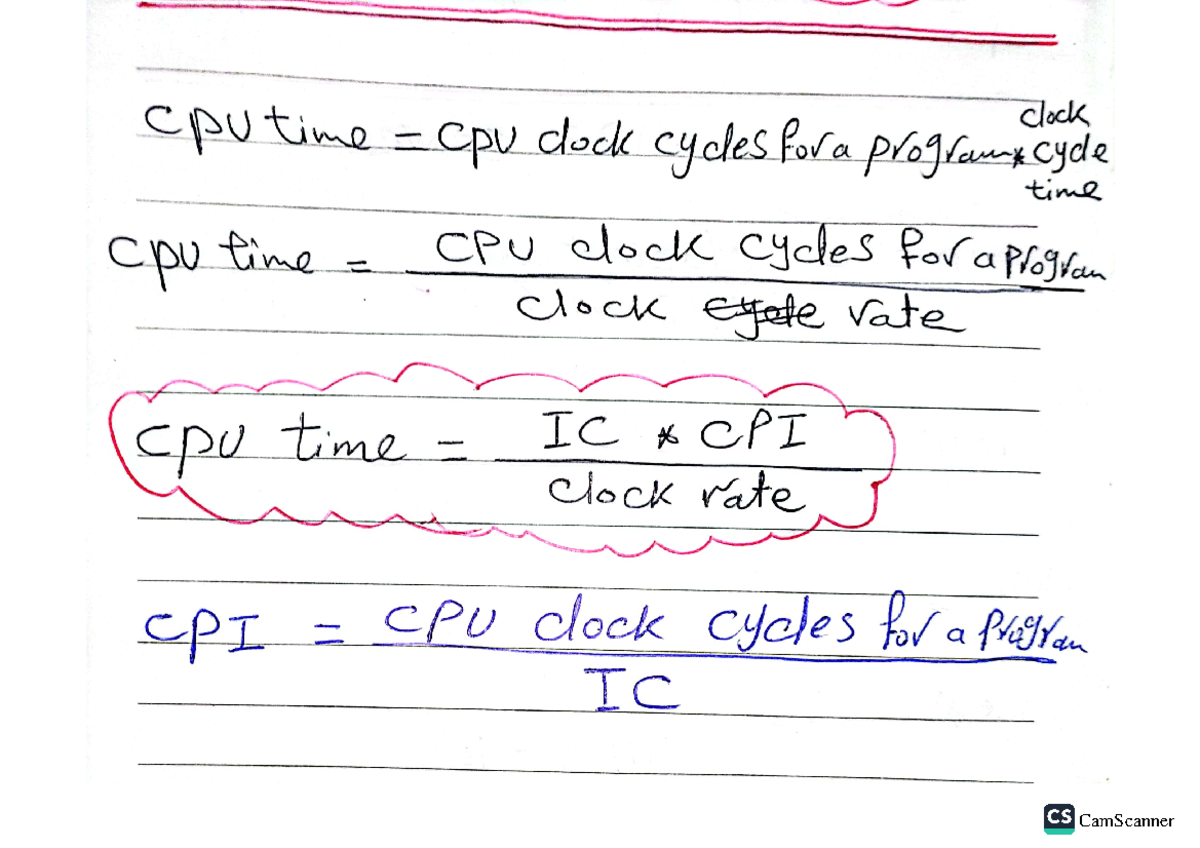 CPU time = CPU clock cycles for a program * clock cycle time
CPU time = CPU clock cycles for a program
clock cycle rate
CPU time = IC * CPI
clock rate
CPI = CPU clock cycles for a program
IC
CS CamScanner